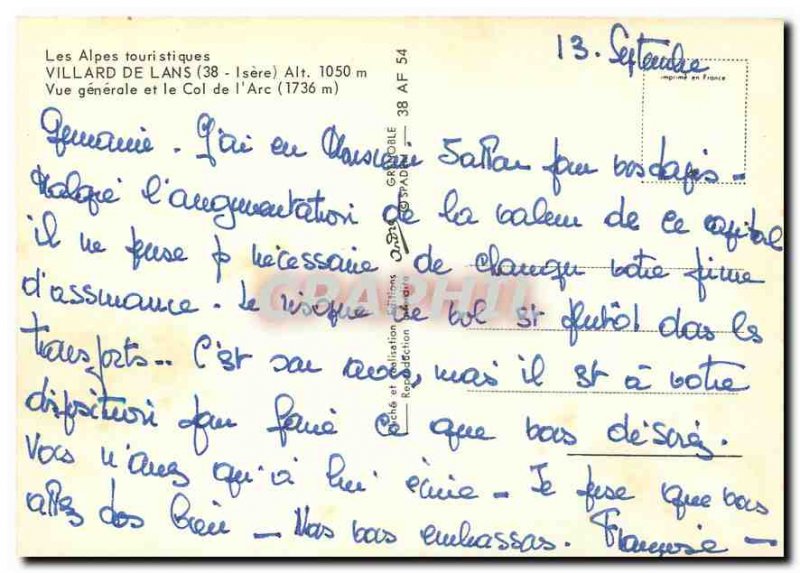 Les Alpes touristiques
VILLARD DE LANS (38 - Isère) Alt. 1050 m
Vue générale et le Col de l'Arc (1736 m)
13. Septembre
imprimé en France
38 AF 54
GRENOBLE
Cliché et réalisation Editions André
Reproduction interdite
Germaine. J'ai eu Monsieur pour vos tapis -
Malgré l'augmentation de la valeur de ce capital
il ne pense p nécessaire de changer votre prime
d'assurance. Le risque de vol st plutôt dans les
transports.. C'est son avis, mais il st à votre
disposition pour faire ce que vous désirez.
Vous n'avez qu'à lui écrire - Je pense que vous
allez tous bien - Nous vous embrassons. Françoise -